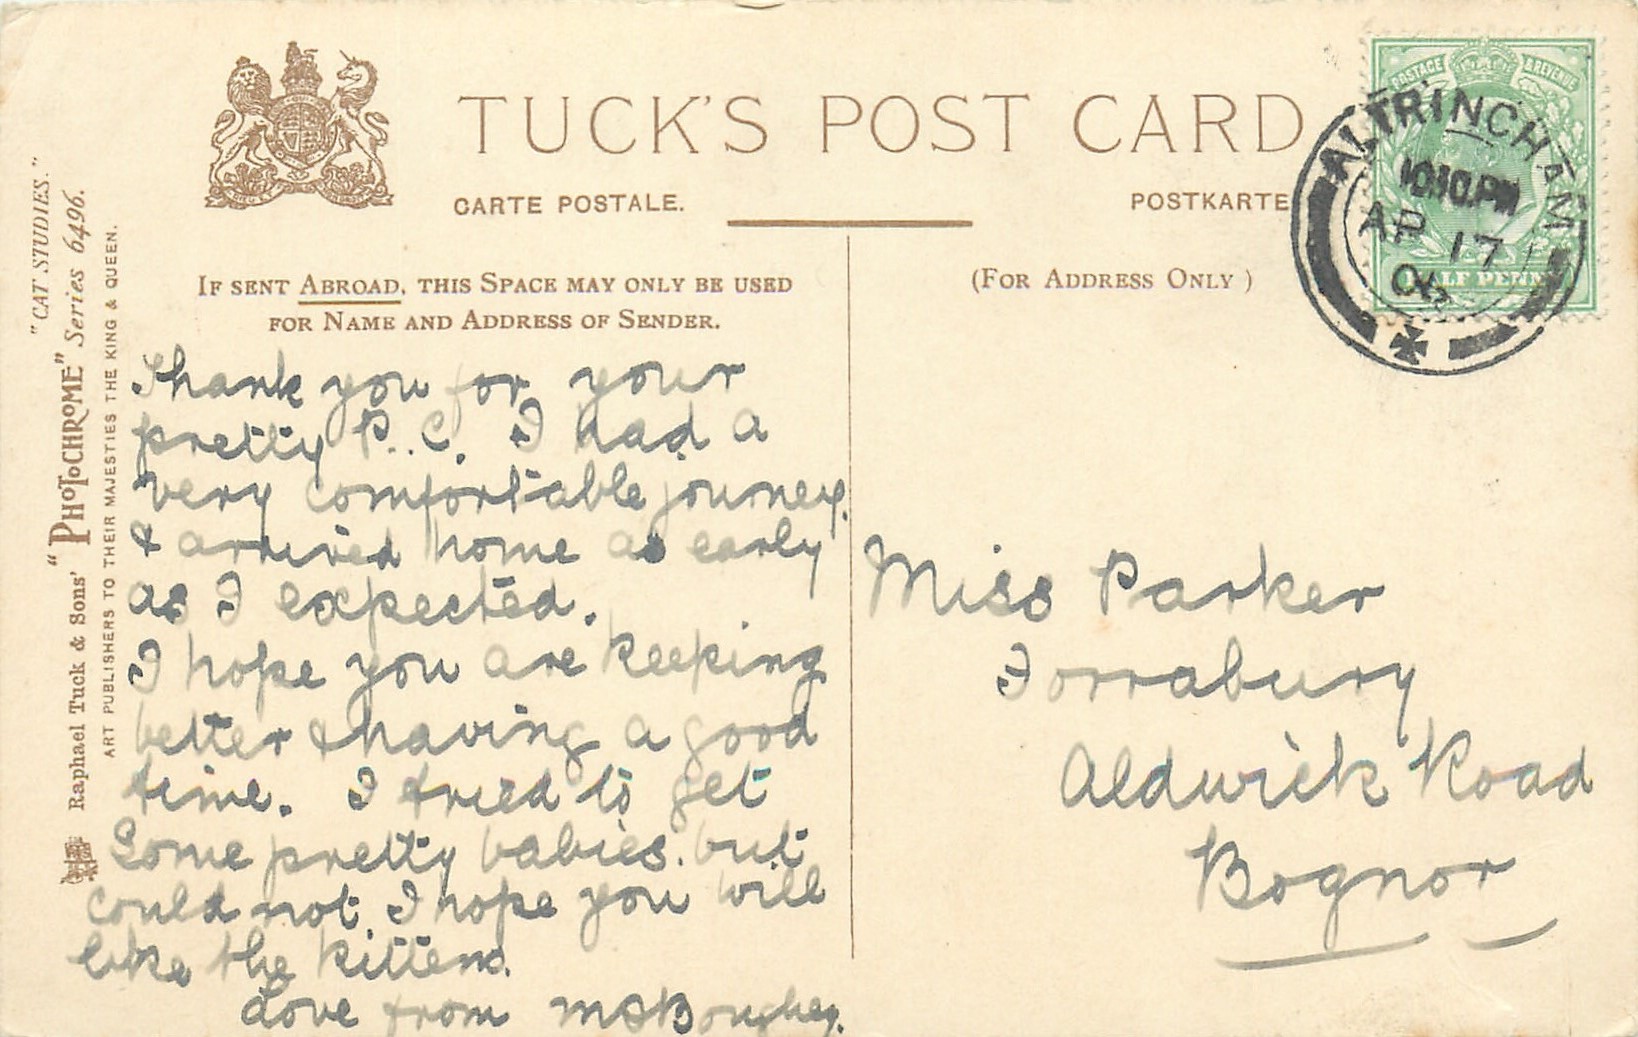 TUCK'S POST CARD
CARTE POSTALE.
POSTKARTE
IF SENT ABROAD, THIS SPACE MAY ONLY BE USED
FOR NAME AND ADDRESS OF SENDER.
(FOR ADDRESS ONLY)
POSTAGE & REVENUE
HALF PENNY
ALTRINCHAM
10.10.PM
AP 17
"CAT STUDIES."
Raphael Tuck & Sons' "PHOTOCHROME" Series 6496.
ART PUBLISHERS TO THEIR MAJESTIES THE KING & QUEEN.
Thank you for your
pretty P.C. I had a
very comfortable journey.
& arrived home as early
as I expected.
I hope you are keeping
better & having a good
time. I tried to get
some pretty babies. but
could not. I hope you will
like the kittens.
Love from
Miss Parker
Forrabury
Aldwick Road
Bognor